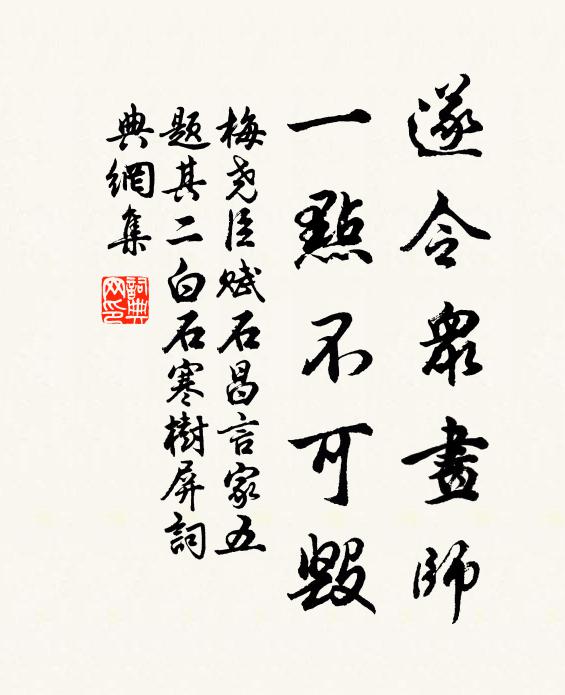 遂令衆畫師
一點不可毀
梅堯臣賦石昌言家五
題其二白石寒樹屏詞
典網集
詞典網印